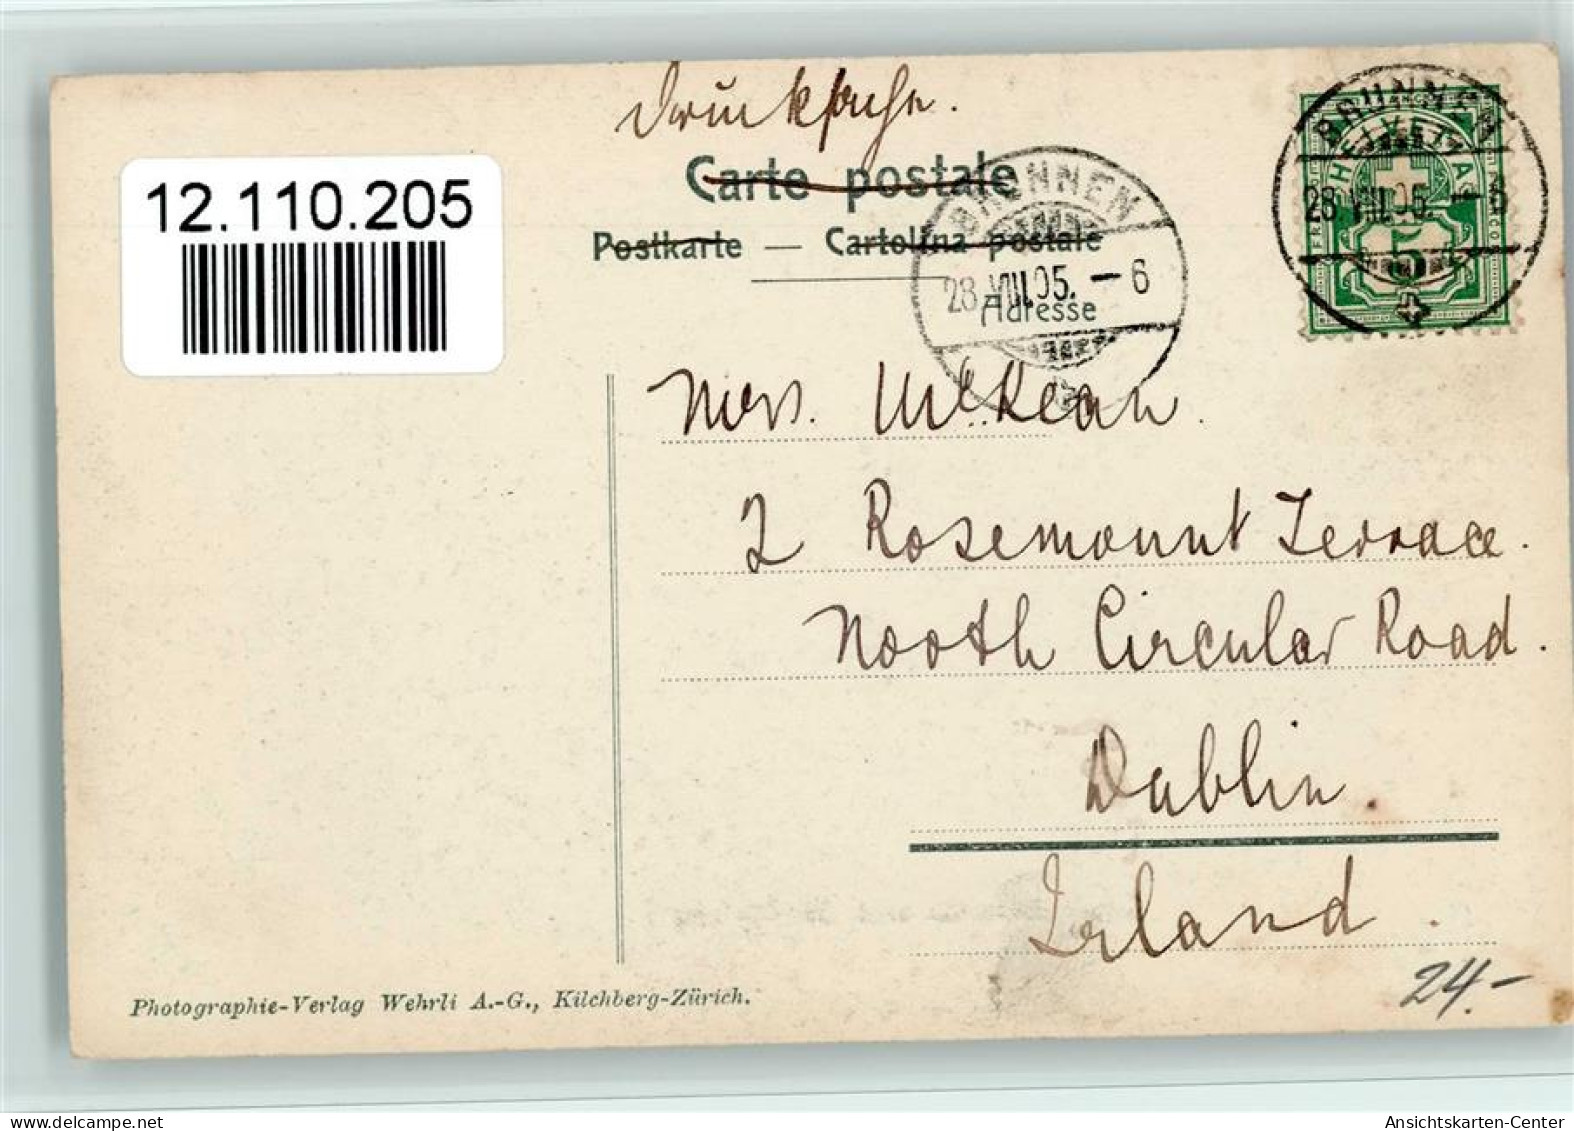 Drucksache.
12.110.205
Carte postale
Postkarte — Cartolina postale
Adresse
BRUNNEN
28.VIII.05. — 6
BRUNNEN
28.VIII.05. — 6
HELVETIA
FRANCO
5
Mrs. McKean.
2 Rosemount Terrace.
North Circular Road.
Dublin.
Irland.
24.-
Photographie-Verlag Wehrli A.-G., Kilchberg-Zürich.
Ansichtskarten-Center